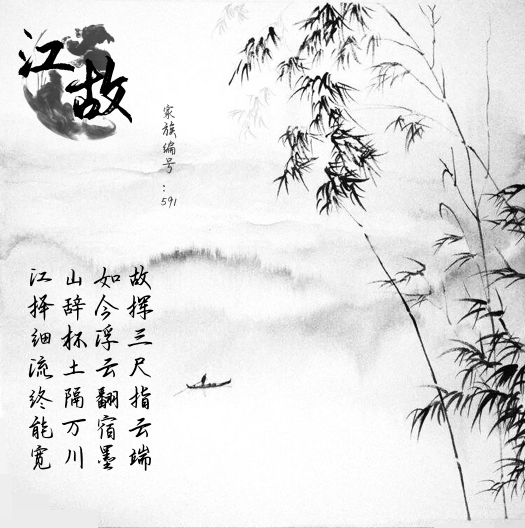 江故
家族编号：591
江择细流终能宽
山辞杯土隔万川
如今浮云翻宿墨
故挥三尺指云端